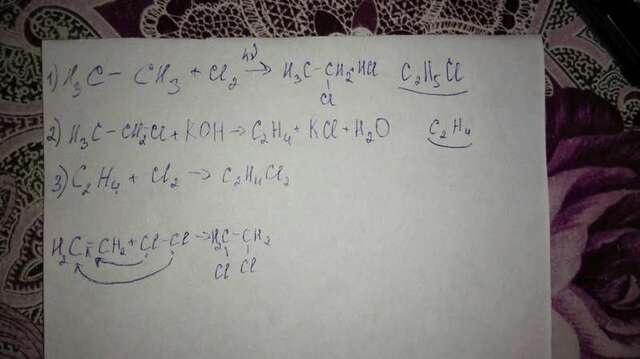 1) H₃C – CH₃ + Cl₂ hν → H₃C – CH₂ HCl C₂H₅Cl
Cl
2) H₃C – CH₂Cl + KOH → C₂H₄ + KCl + H₂O C₂H₄
3) C₂H₄ + Cl₂ → C₂H₄Cl₂
H₂C = CH₂ + Cl – Cl → H₂C – CH₂
Cl Cl